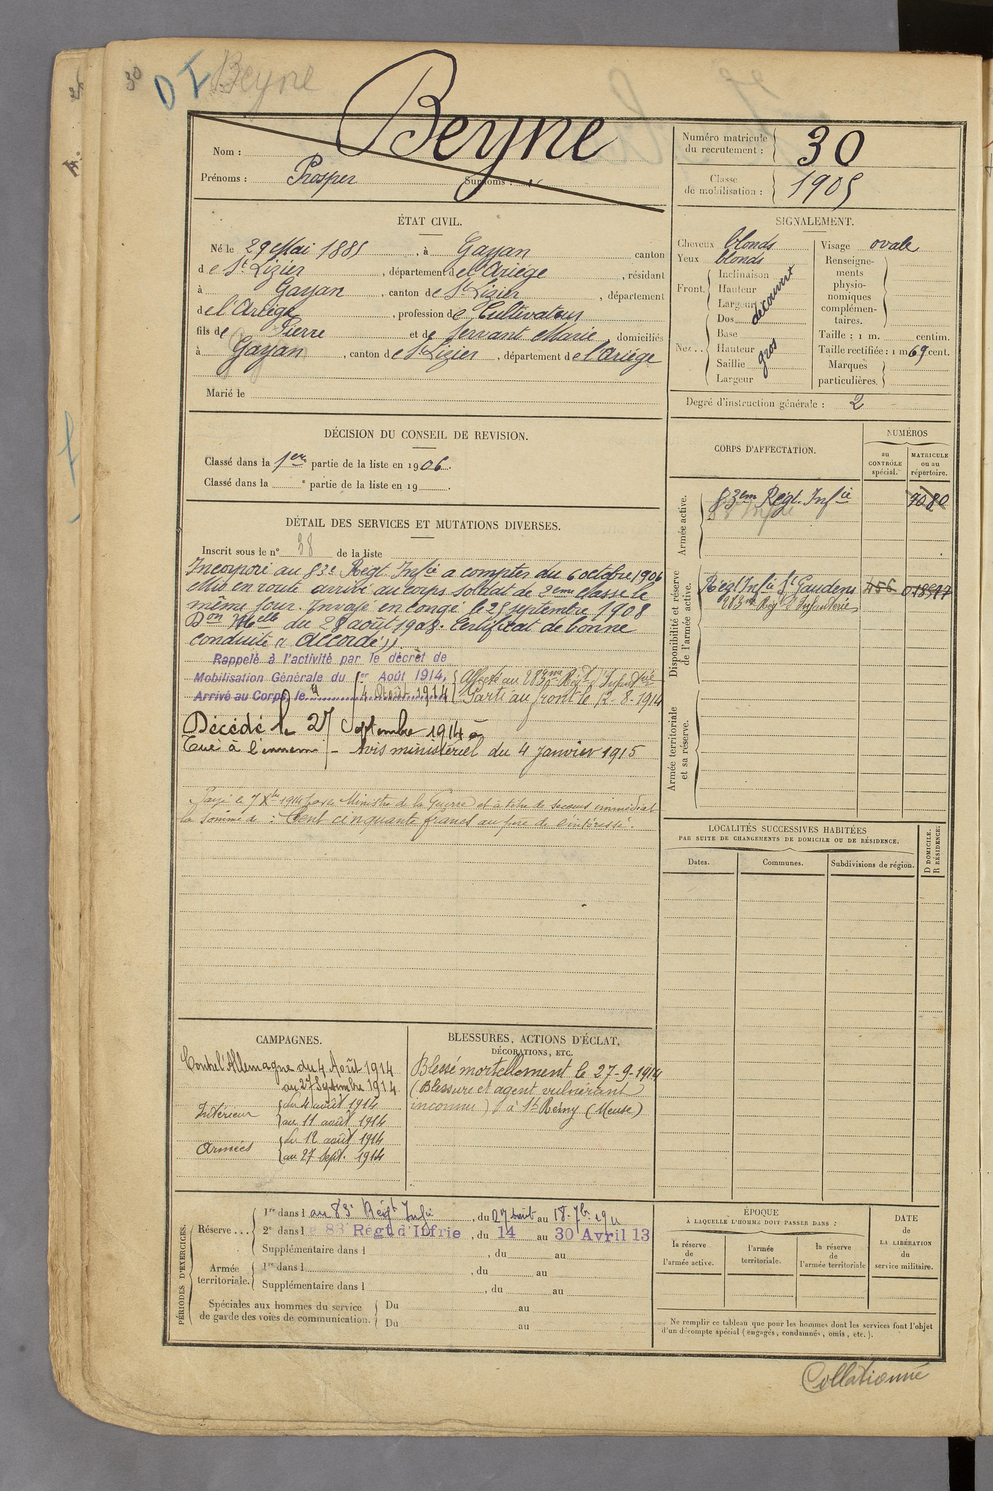 30
D I Beyne
Nom : Beyne
Prénoms : Prosper Surnoms : "
Numéro matricule
du recrutement : 30
Classe
de mobilisation : 1905
ÉTAT CIVIL.
Né le 29 Mai 1885, à Gajan canton
de St Lizier, département de l'Ariège, résidant
à Gajan, canton de St Lizier, département
de l'Ariège, profession de Cultivateur
fils de Pierre et de Servant Marie, domiciliés
à Gajan, canton de St Lizier, département de l'Ariège
Marié le
SIGNALEMENT.
Cheveux blonds
Yeux blonds
Front. Inclinaison
Hauteur
Largeur
découvert
Nez.. Dos
Base
Hauteur
Saillie
Largeur
gros
Visage ovale
Renseigne-
ments
physio-
nomiques
complémen-
taires.
Taille : 1 m. centim.
Taille rectifiée : 1 m 69 cent.
Marques
particulières.
Degré d'instruction générale : 2
DÉCISION DU CONSEIL DE REVISION.
Classé dans la 1ère partie de la liste en 1906.
Classé dans la e partie de la liste en 19
DÉTAIL DES SERVICES ET MUTATIONS DIVERSES.
Inscrit sous le n° 38 de la liste
Incorporé au 83e Régt Infie a compter du 6 octobre 1906
Mis en route arrivé au corps soldat de 2eme classe le
même jour. Envoyé en congé le 25 septembre 1908
Don Mlle du 28 août 1908. Certificat de bonne
conduite « Accordé »
Rappelé à l'activité par le décret de
Mobilisation Générale du 1er Août 1914,
Arrivé au Corps, le 4 Août 1914
Affecté au 283me Régt d'Infanterie
Parti au front le 12-8-1914
Décédé le 27 Septembre 1914
Tué à l'ennemi - Avis ministériel du 4 janvier 1915
Payé le 7 Xbre 1914 par le Ministre de la Guerre et à titre de secours immédiat
la somme de : Cent cinquante francs au père de l'intéressé.
CORPS D'AFFECTATION.
NUMÉROS
au
CONTRÔLE
spécial.
MATRICULE
ou au
répertoire.
Armée active.
83em Régt. Infie 7080
Disponibilité et réserve
de l'armée active.
Régt Infie St Gaudens 456
283me Régt d'Infanterie
Armée territoriale
et sa réserve.
LOCALITÉS SUCCESSIVES HABITÉES
PAR SUITE DE CHANGEMENTS DE DOMICILE OU DE RÉSIDENCE.
Dates. Communes. Subdivisions de région. D DOMICILE. R RÉSIDENCE.
CAMPAGNES.
Contre l'Allemagne du 4 Août 1914
au 27 Septembre 1914
Intérieur du 4 août 1914
au 11 août 1914
Armées du 12 août 1914
au 27 Sept. 1914
BLESSURES, ACTIONS D'ÉCLAT,
DÉCORATIONS, ETC.
Blessé mortellement le 27-9-1914
(Blessure et agent vulnérant
inconnu) à St Rémy (Meuse)
PÉRIODES D'EXERCICES.
Réserve... 1re dans l au 83e Régt Infie, du 27 août au 18. 7bre 1911
2e dans l e 83e Regt d'Infrie, du 14 au 30 Avril 13
Supplémentaire dans l , du au
Armée
territoriale. 1re dans l , du au
Supplémentaire dans l , du au
Spéciales aux hommes du service
de garde des voies de communication. Du au
Du au
ÉPOQUE
À LAQUELLE L'HOMME DOIT PASSER DANS :
la réserve
de
l'armée active.
l'armée
territoriale.
la réserve
de
l'armée territoriale
DATE
de
LA LIBÉRATION
du
service militaire.
Ne remplir ce tableau que pour les hommes dont les services font l'objet
d'un décompte spécial (engagés, condamnés, omis, etc.).
Collationné